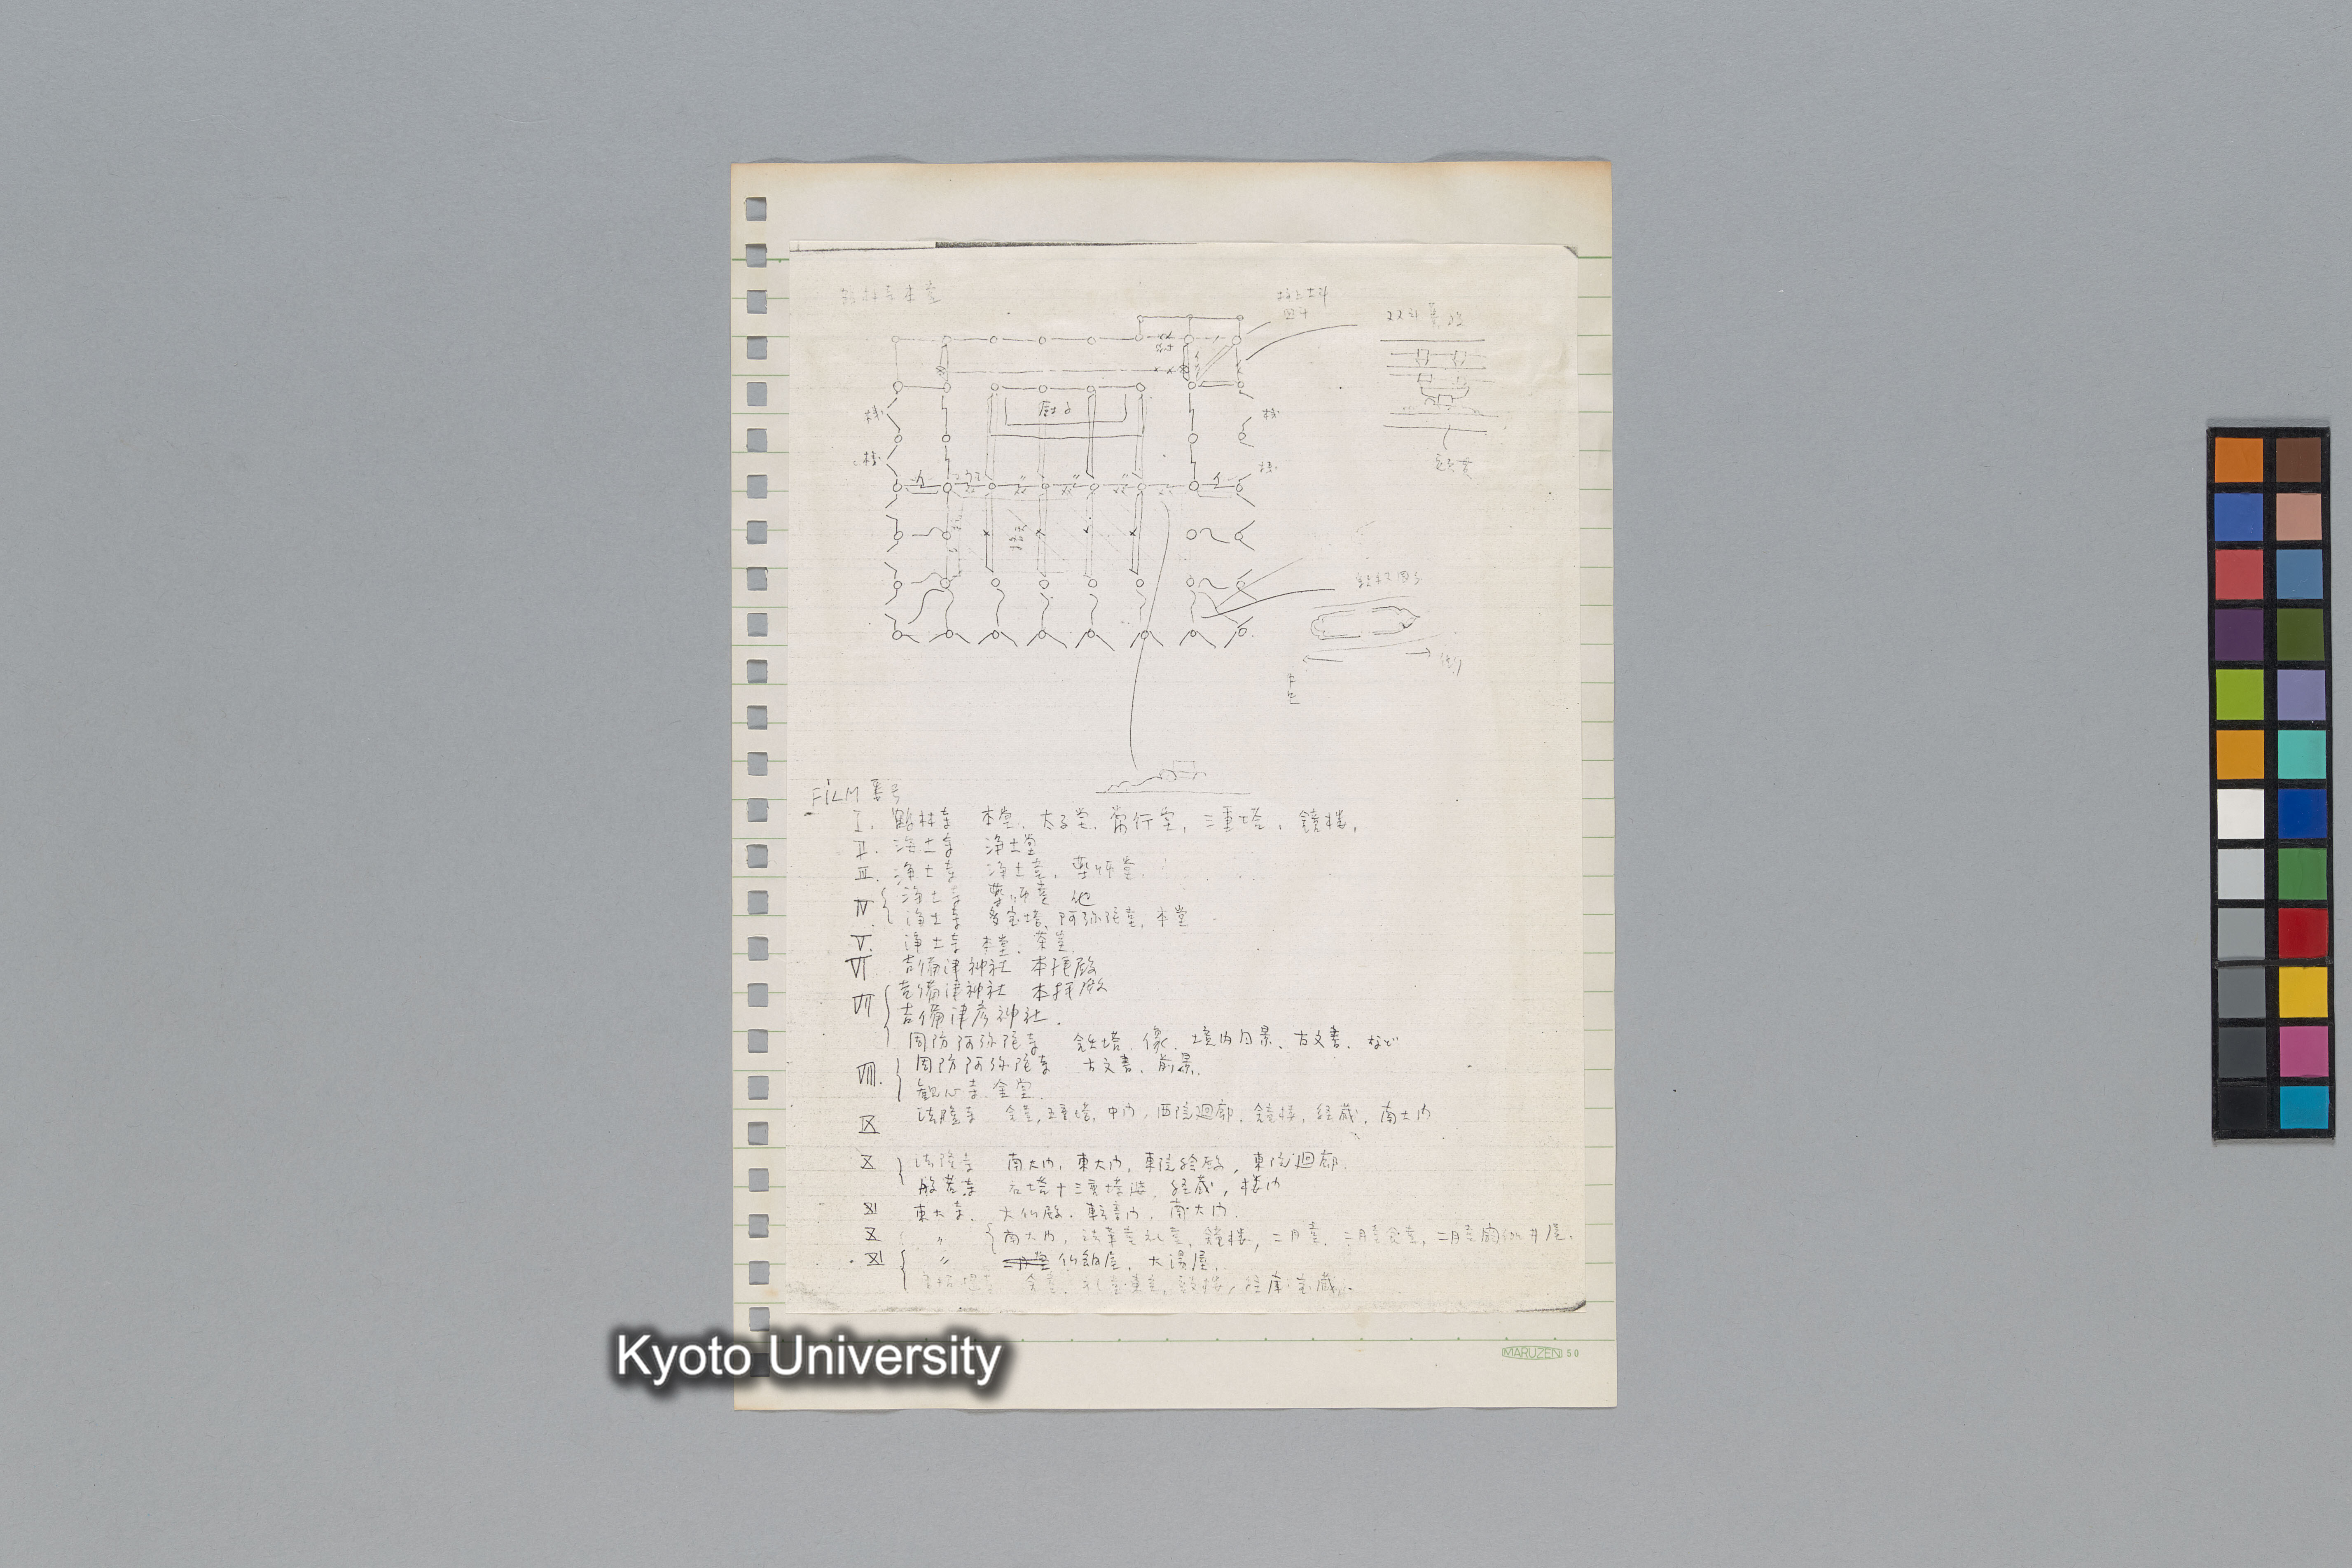 鶴林寺本堂
厨子
桟
桟
桟
桟
FILM 番号
I. 鶴林寺 本堂、太子堂、常行堂、三重塔、鐘楼、
II. 浄土寺 浄土堂
III. 浄土寺 浄土堂、薬師堂
IV. 浄土寺 薬師堂 他
浄土寺 多宝塔、阿弥陀堂、本堂
V. 浄土寺 本堂、茶室
VI 吉備津神社 本拝殿
VII 吉備津神社 本拝殿
吉備津彦神社.
周防阿弥陀寺 鉄塔、像、境内風景、古文書、など
VIII. 周防阿弥陀寺 古文書、前景.
観心寺 金堂.
IX 法隆寺 金堂, 五重塔, 中門, 西院廻廊, 鐘楼, 経蔵, 南大門
X 法隆寺 南大門, 東大門, 東院絵殿, 東院廻廊.
般若寺 石塔十三重塔, 経蔵, 楼門
XI 東大寺. 大仏殿. 転害門. 南大門.
X 〃 南大門, 法華堂礼堂, 鐘楼, 二月堂, 二月堂食堂, 二月堂閼伽井屋.
XI 〃 仏餉屋, 大湯屋.
唐招提寺 金堂, 礼堂・東室, 鼓楼, 経庫・宝蔵,
MARUZEN 50
Kyoto University